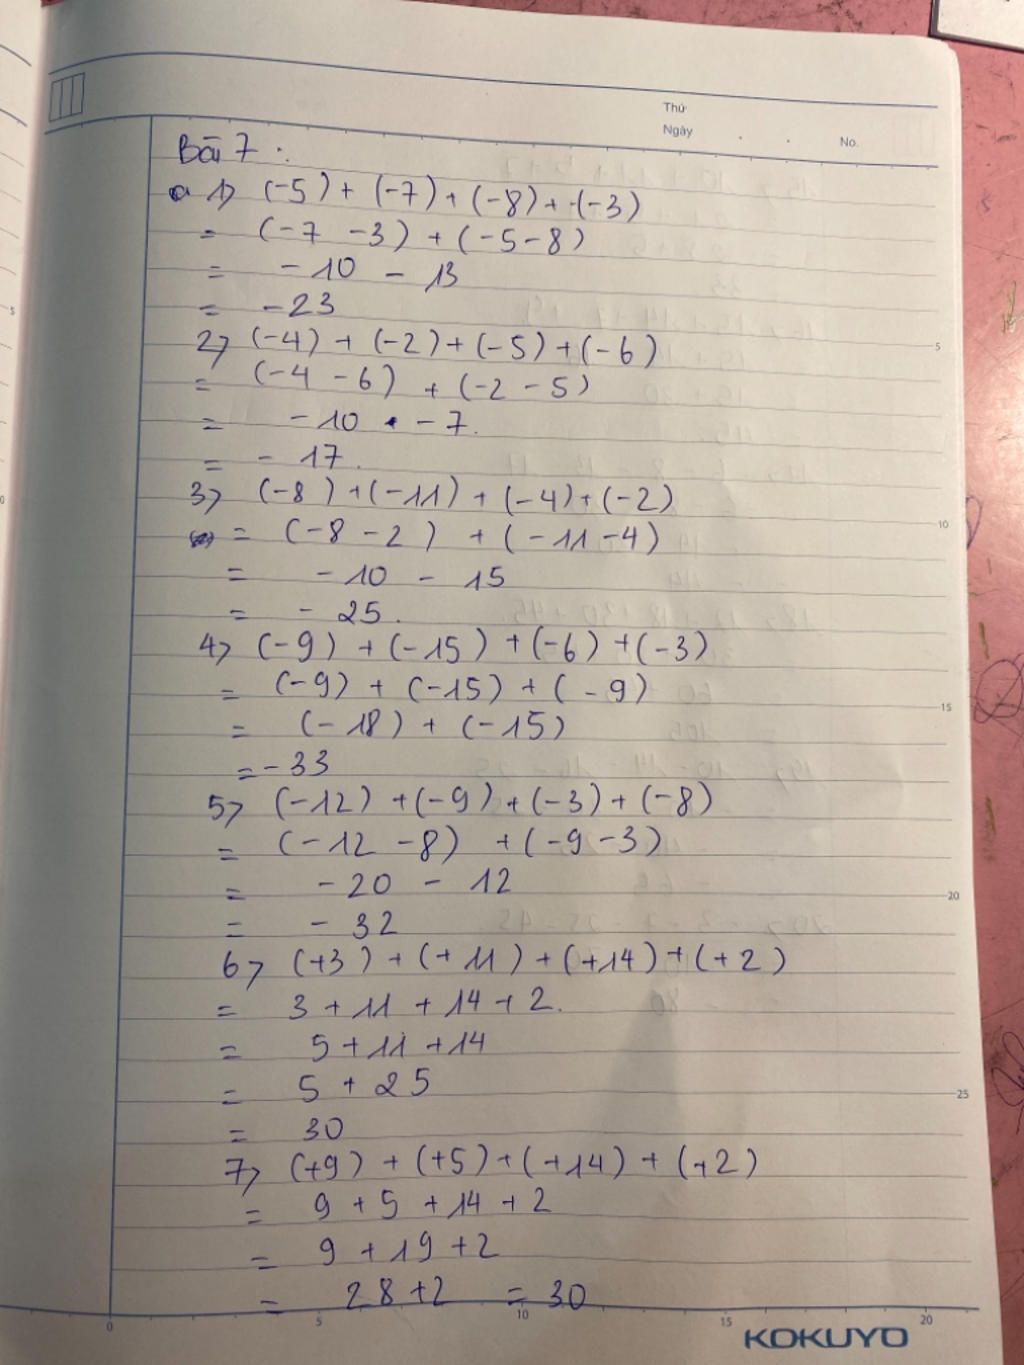 Thứ
Ngày . . No.
Bài 7 :
a 1) (-5) + (-7) + (-8) + (-3)
= (-7 -3) + (-5-8)
= -10 - 13
= -23
2) (-4) + (-2) + (-5) + (-6)
= (-4 - 6) + (-2 - 5)
= -10 - 7.
= - 17.
3) (-8) + (-11) + (-4) + (-2)
= (-8 - 2) + (-11 -4)
= -10 - 15
= - 25.
4) (-9) + (-15) + (-6) + (-3)
= (-9) + (-15) + (-9)
= (-18) + (-15)
= -33
5) (-12) + (-9) + (-3) + (-8)
= (-12 -8) + (-9 -3)
= -20 - 12
= - 32
6) (+3) + (+11) + (+14) + (+2)
= 3 + 11 + 14 + 2.
= 5 + 11 + 14
= 5 + 25
= 30
7) (+9) + (+5) + (+14) + (+2)
= 9 + 5 + 14 + 2
= 9 + 19 + 2
= 28 + 2 = 30
5
10
15
20
25
0 5 10 15 20
KOKUYO